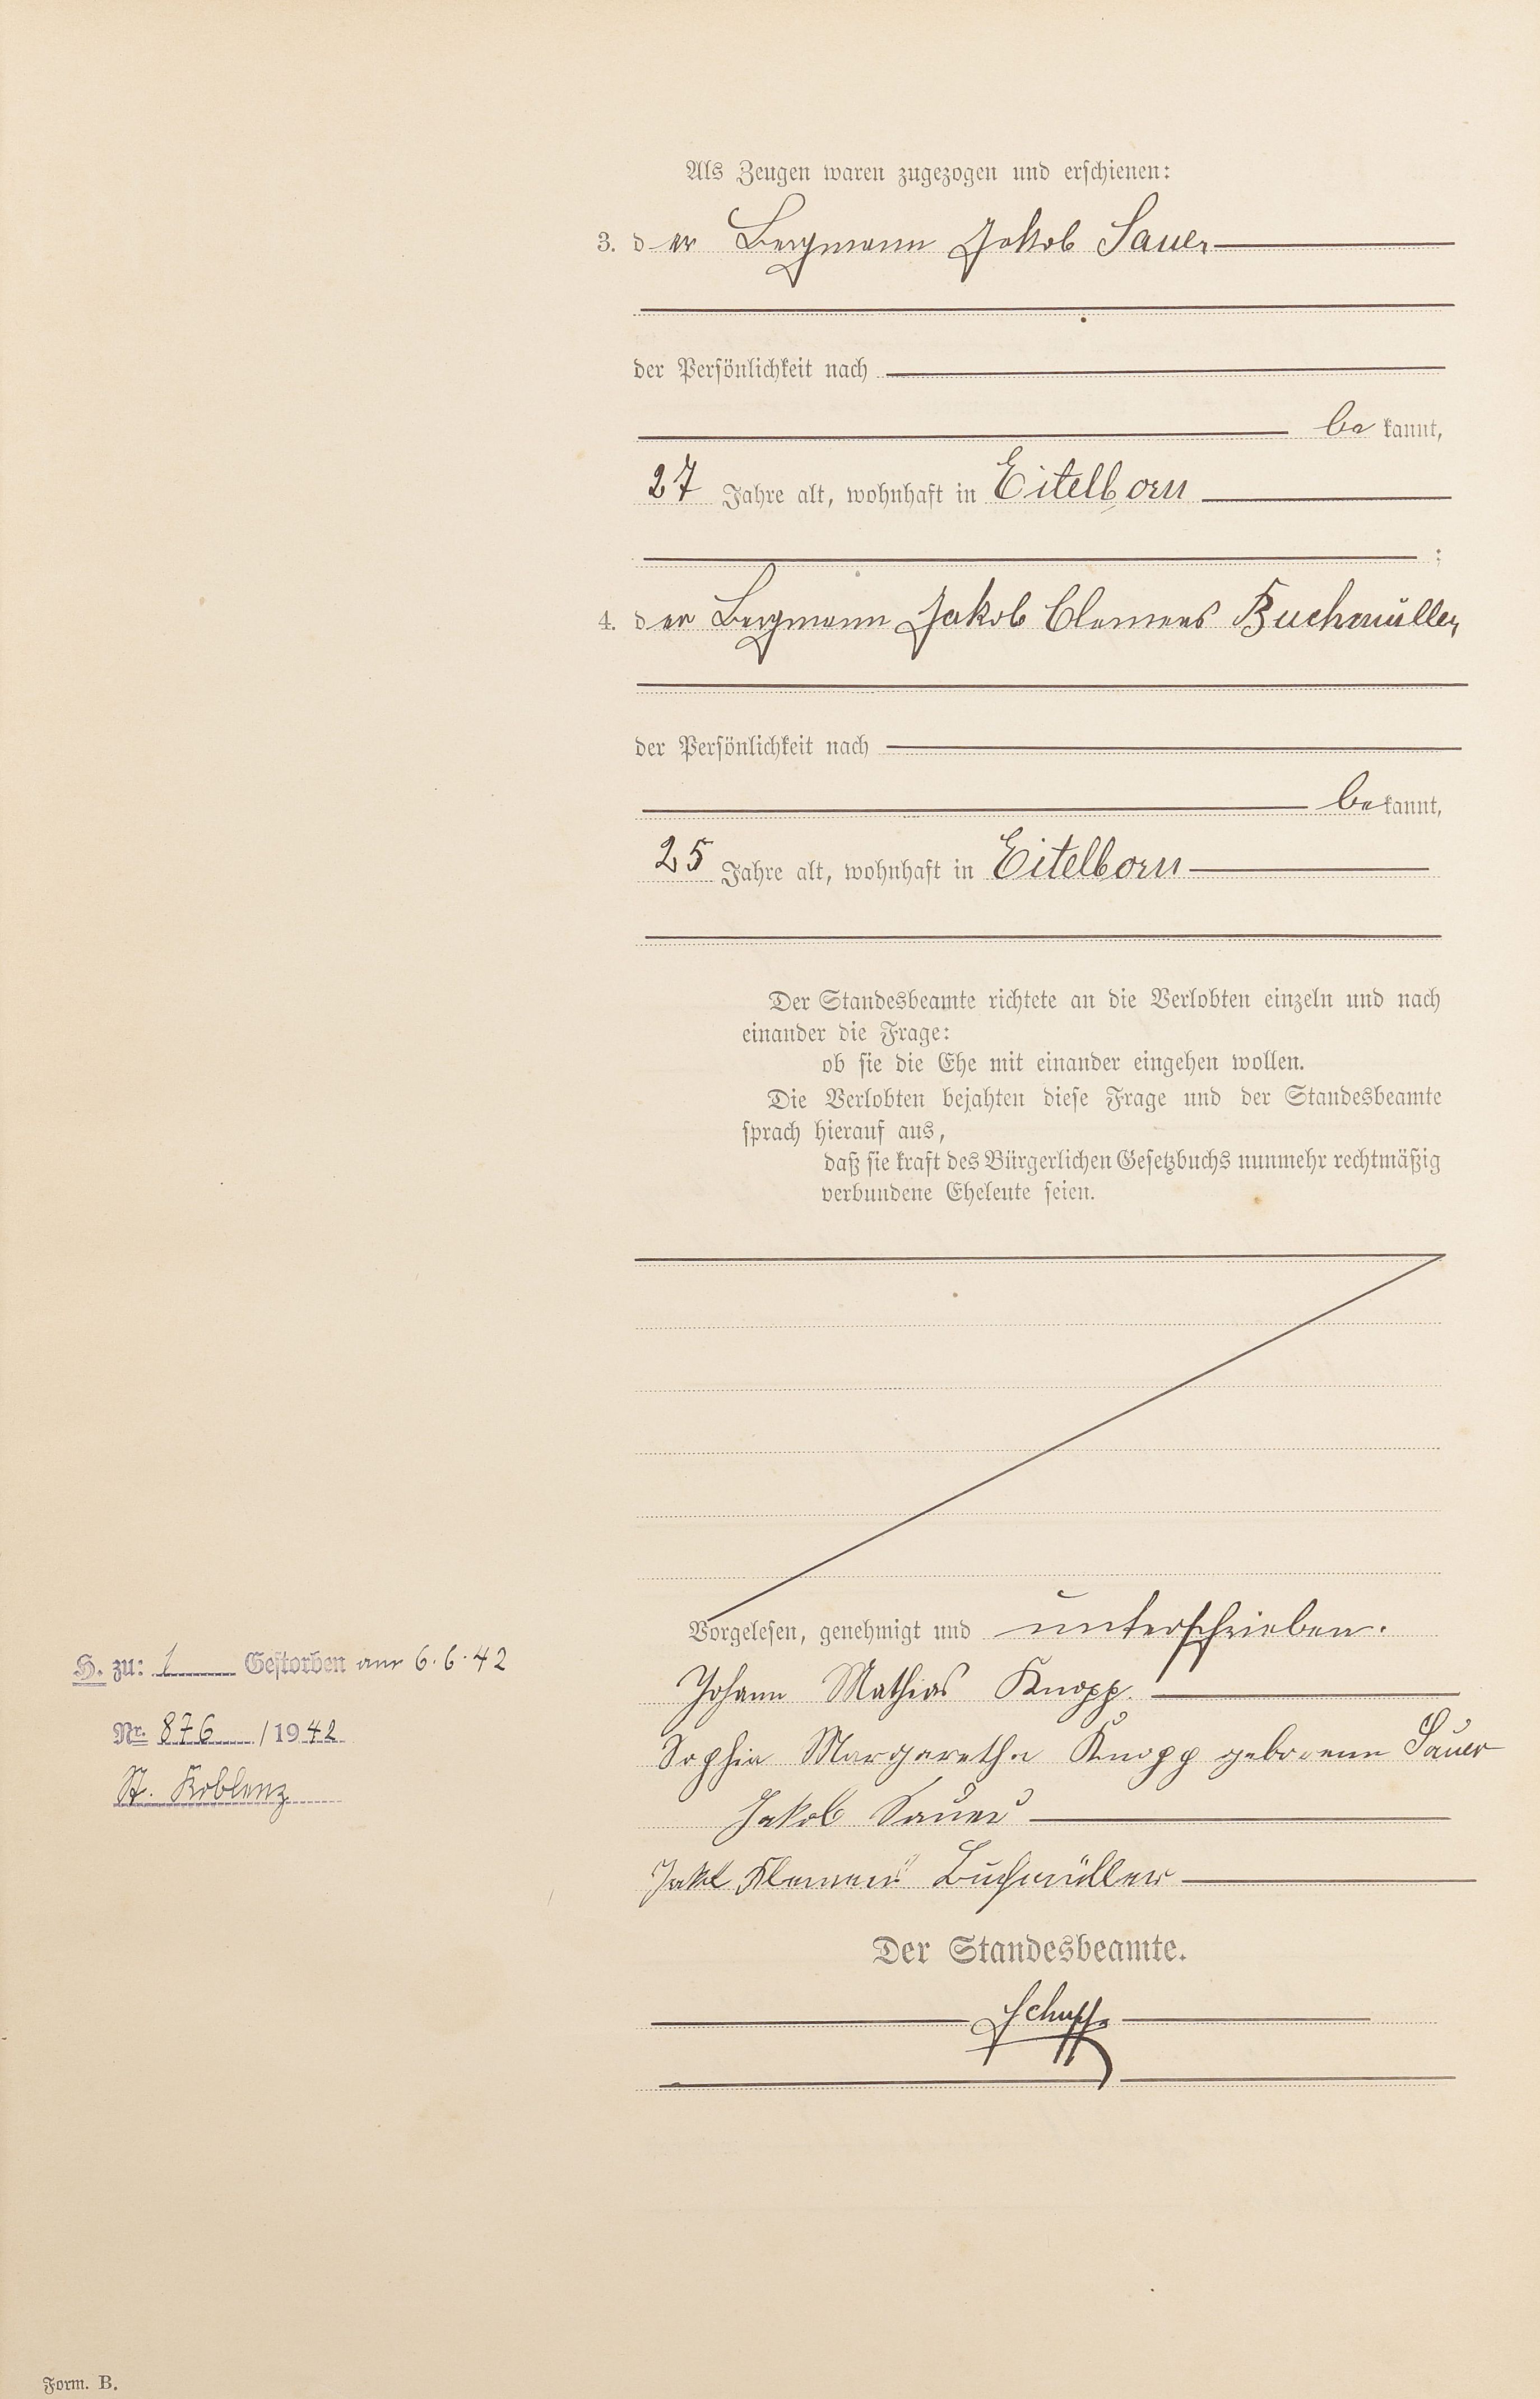 Als Zeugen waren zugezogen und erschienen:
3. der Bergmann Jakob Sauer
der Persönlichkeit nach
bekannt,
27 Jahre alt, wohnhaft in Eitelborn
;
4. der Bergmann Jakob Clemens Buchmüller
der Persönlichkeit nach
bekannt,
25 Jahre alt, wohnhaft in Eitelborn
Der Standesbeamte richtete an die Verlobten einzeln und nach
einander die Frage:
ob sie die Ehe mit einander eingehen wollen.
Die Verlobten bejahten diese Frage und der Standesbeamte
sprach hierauf aus,
daß sie kraft des Bürgerlichen Gesetzbuchs nunmehr rechtmäßig
verbundene Eheleute seien.
Vorgelesen, genehmigt und unterschrieben.
Johann Mathias Knopp.
Sophia Margaretha Knopp geborene Sauer
Jakob Sauer
Jakob Klemens Buchmüller
Der Standesbeamte.
H. zu: 1 Gestorben am 6.6.42
Nr. 876 / 1942
St. Koblenz
Form. B.